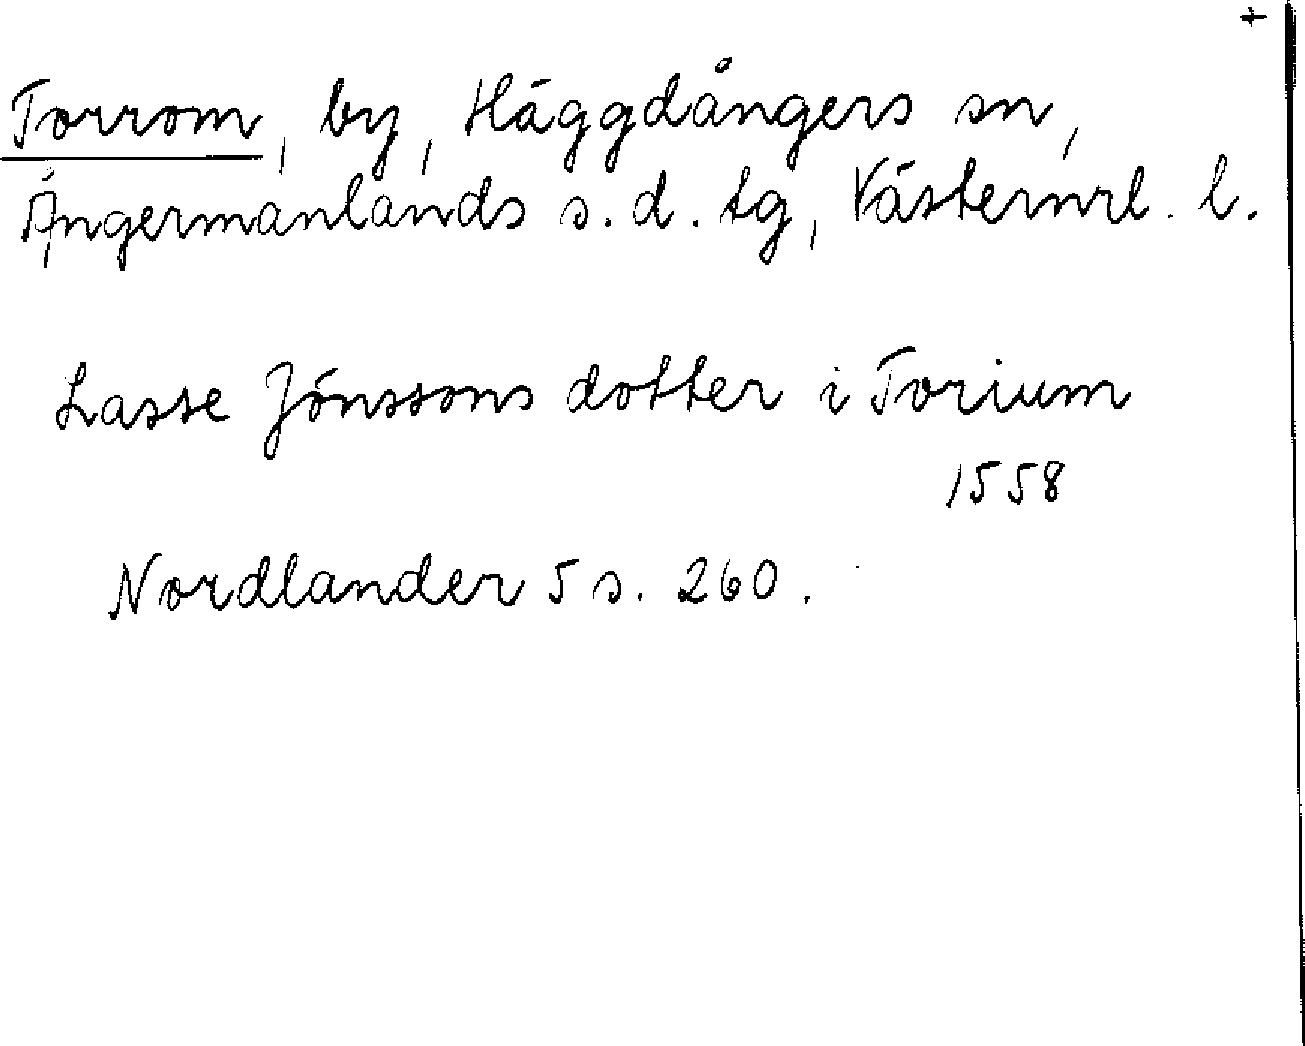 +
Torrom, by, Häggdångers sn,
Ångermanlands s.d. tg, Västernrl. l.
Lasse Jönssons dotter i Torium
1558
Nordlander 5 s. 260.